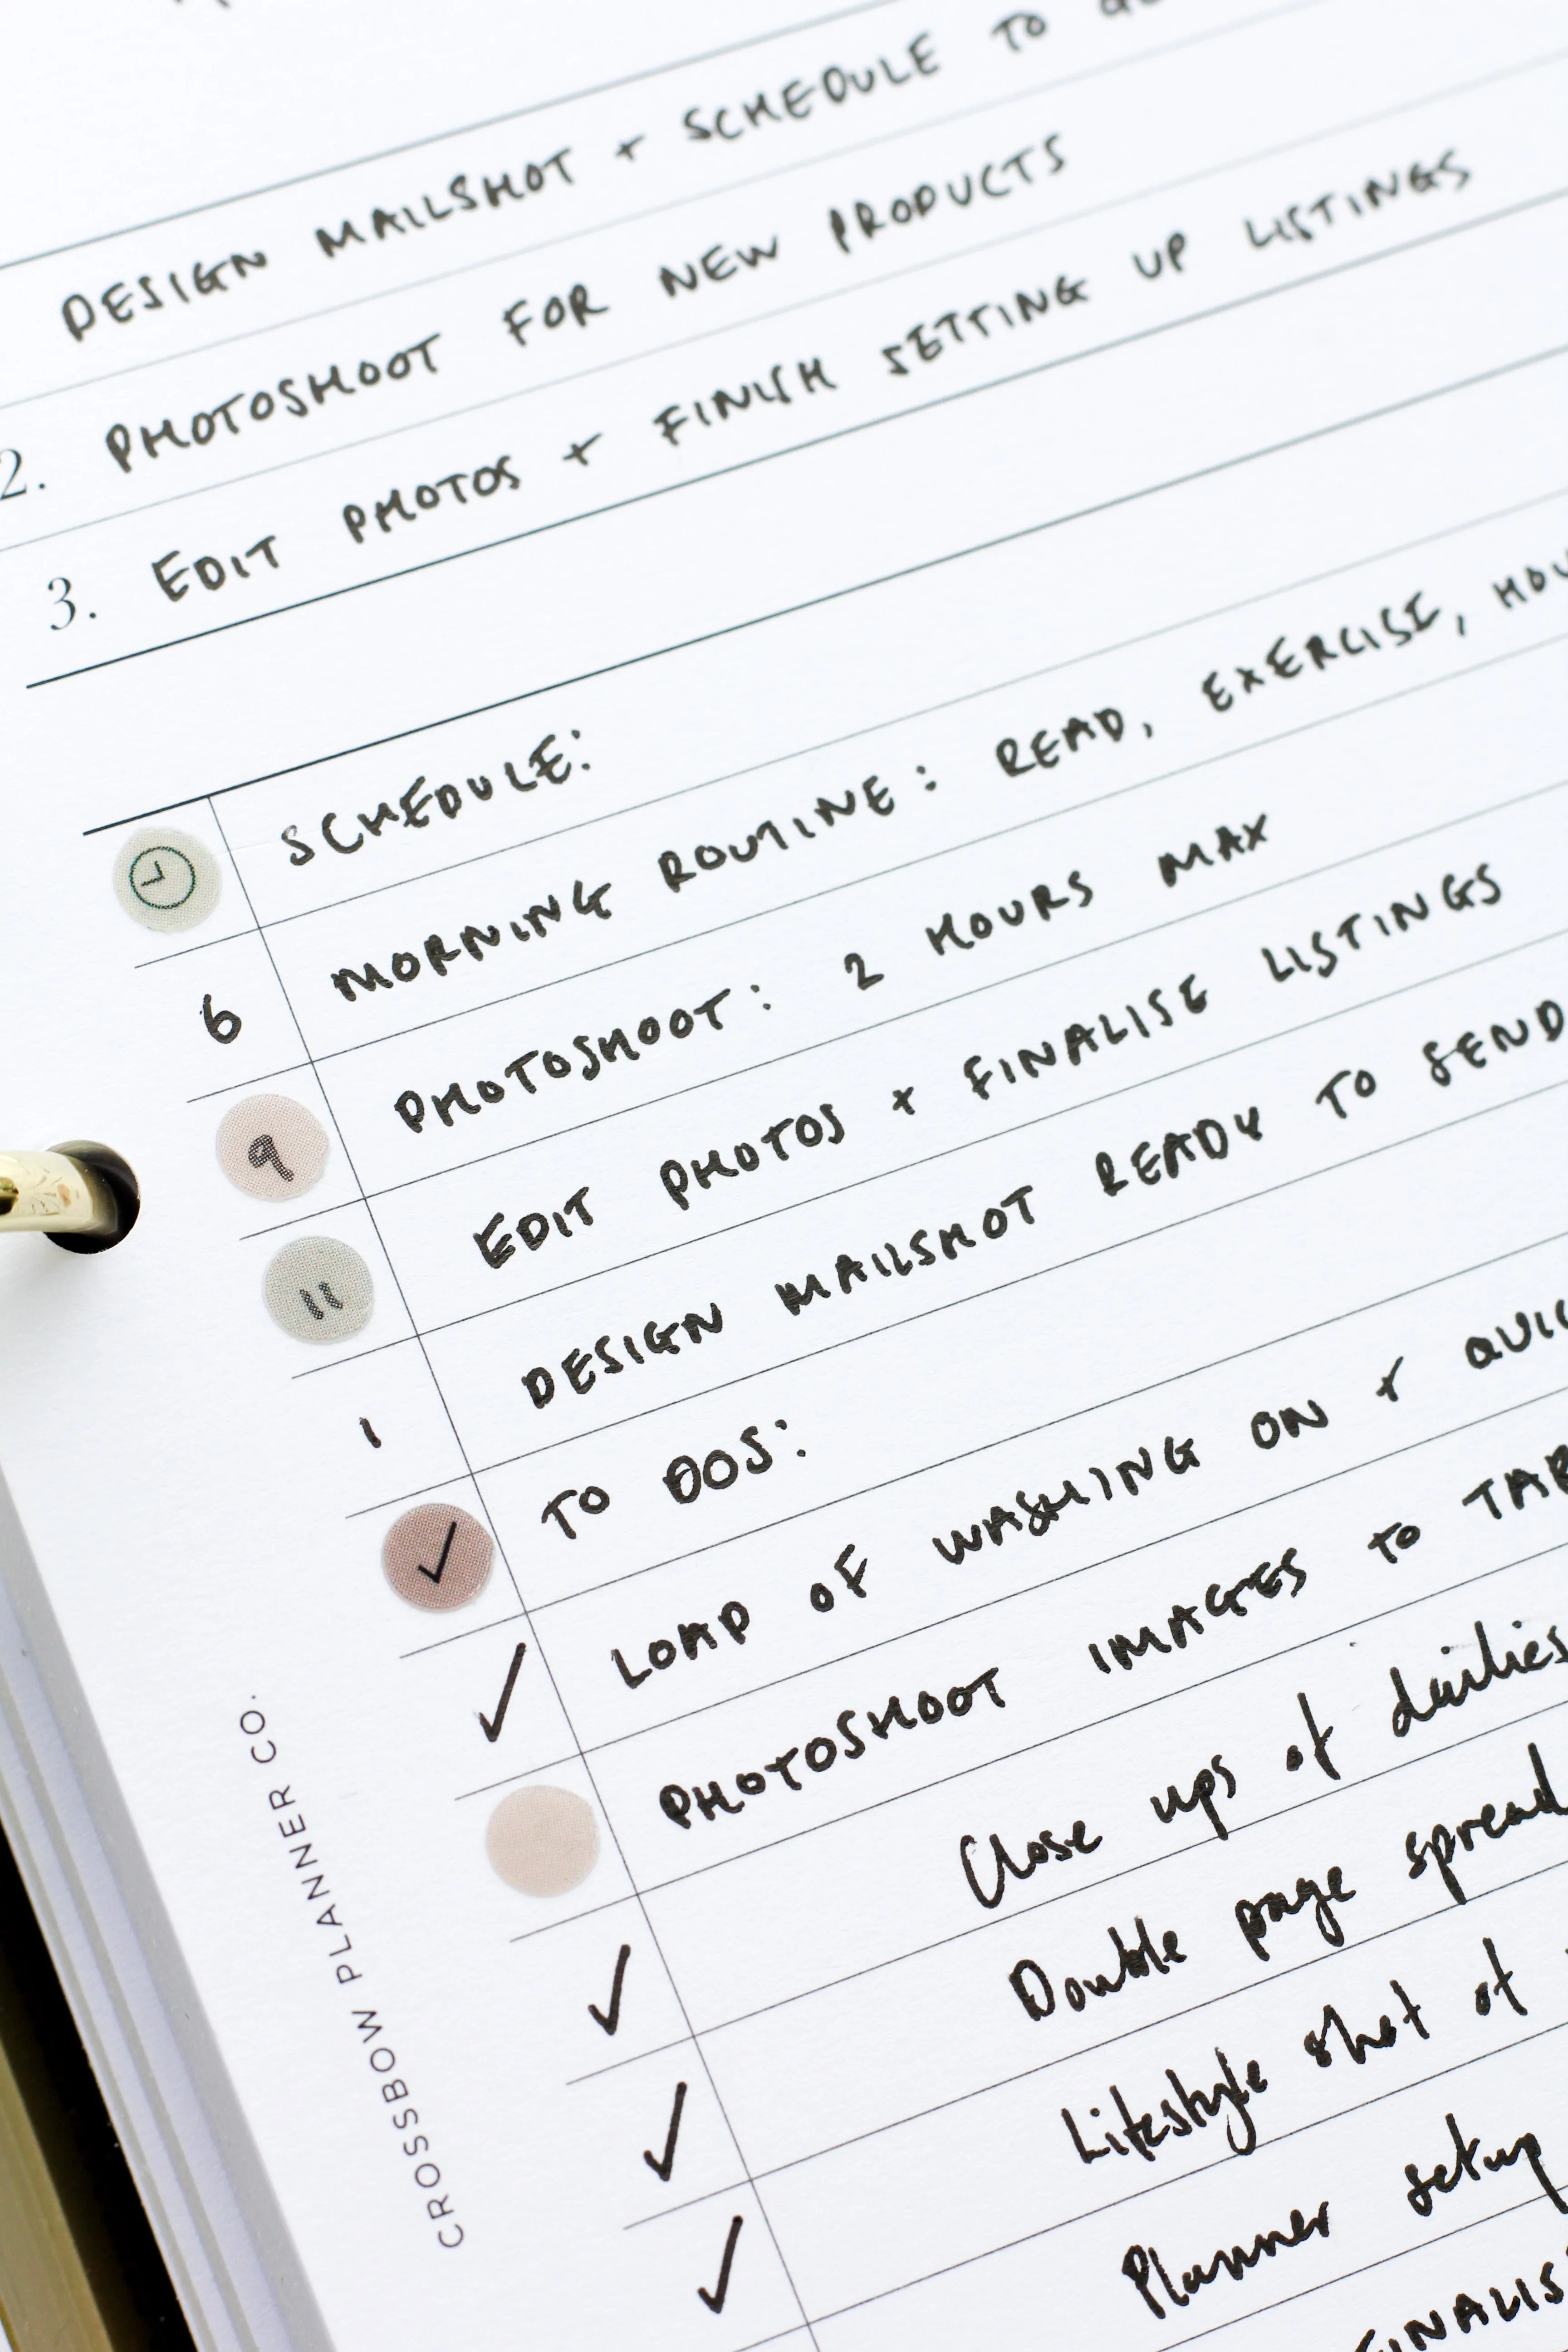 DESIGN MAILSHOT + SCHEDULE TO
2. PHOTOSHOOT FOR NEW PRODUCTS
3. EDIT PHOTOS + FINISH SETTING UP LISTINGS
SCHEDULE:
6 MORNING ROUTINE: READ, EXERCISE,
9 PHOTOSHOOT: 2 HOURS MAX
11 EDIT PHOTOS + FINALISE LISTINGS
1 DESIGN MAILSHOT READY TO SEND
✓ TO DOS:
✓ LOAD OF WASHING ON +
PHOTOSHOOT IMAGES TO
✓ Close ups of dailies
✓ Double page spread
✓ Lifestyle shot of
Planner setup
CROSSBOW PLANNER CO.